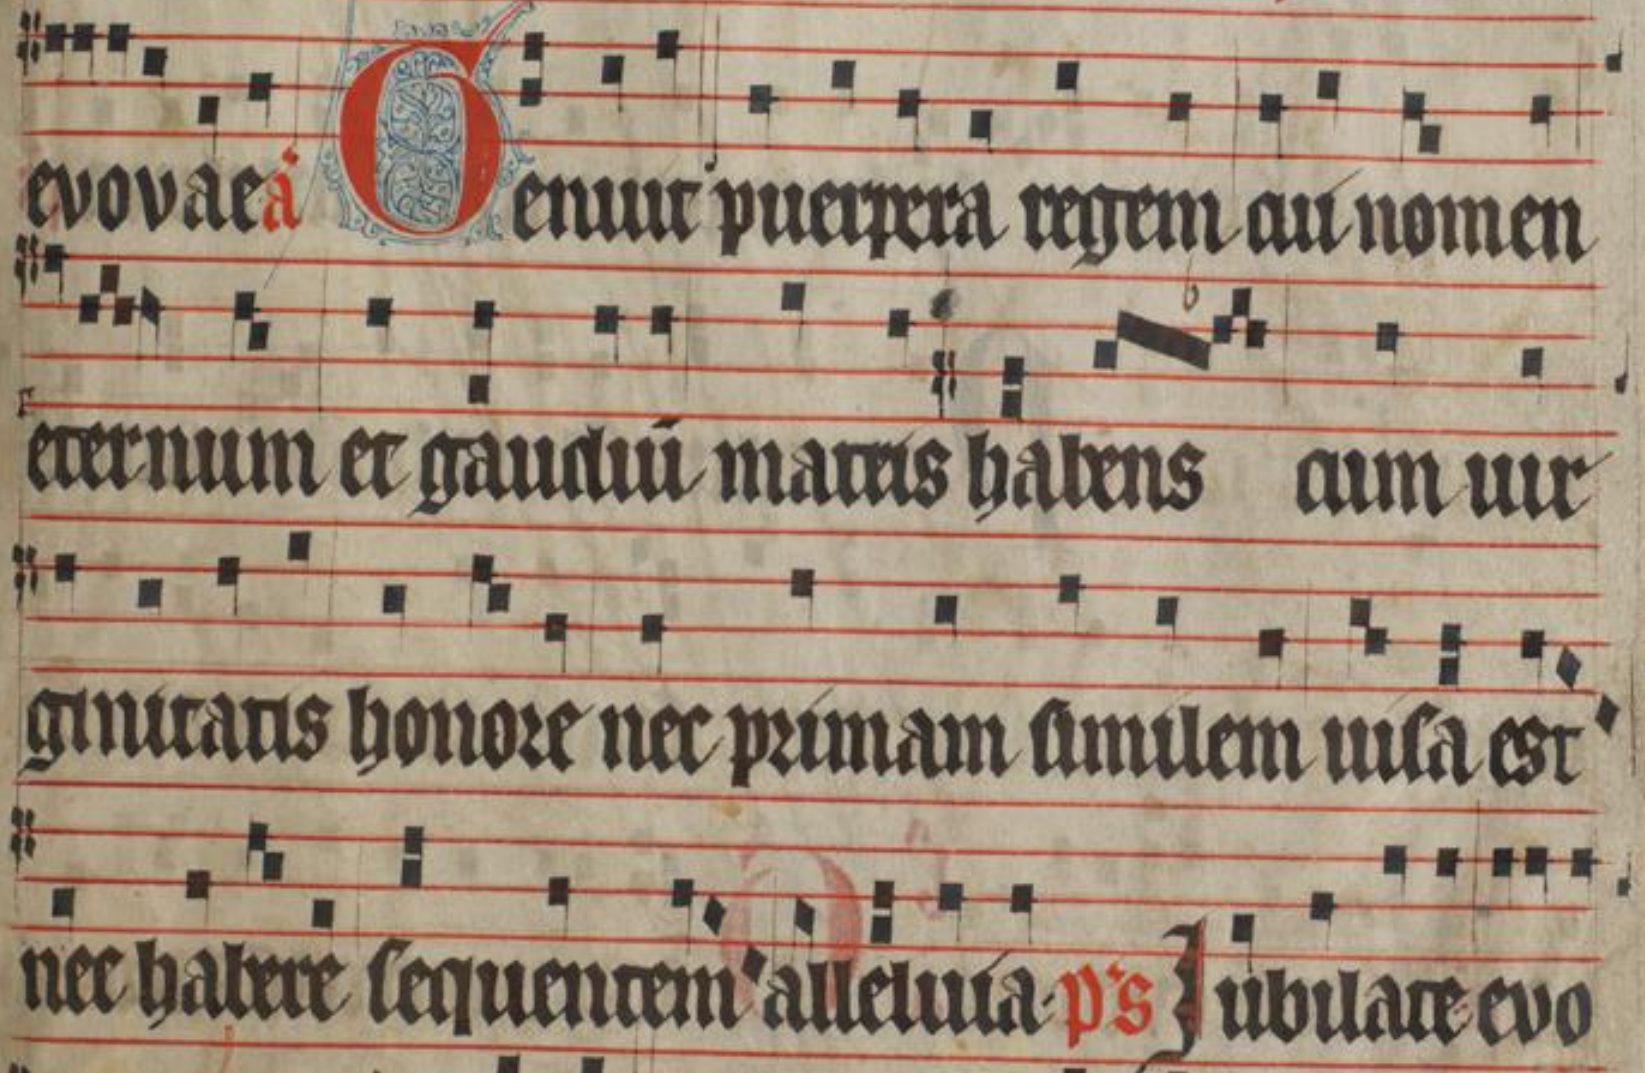 evovae a Genuit puerpera regem cui nomen
eternum et gaudiū matris habens cum uir
ginitatis honore nec primam similem uisa est
nec habere sequentem alleluia. p's Iubilate evo